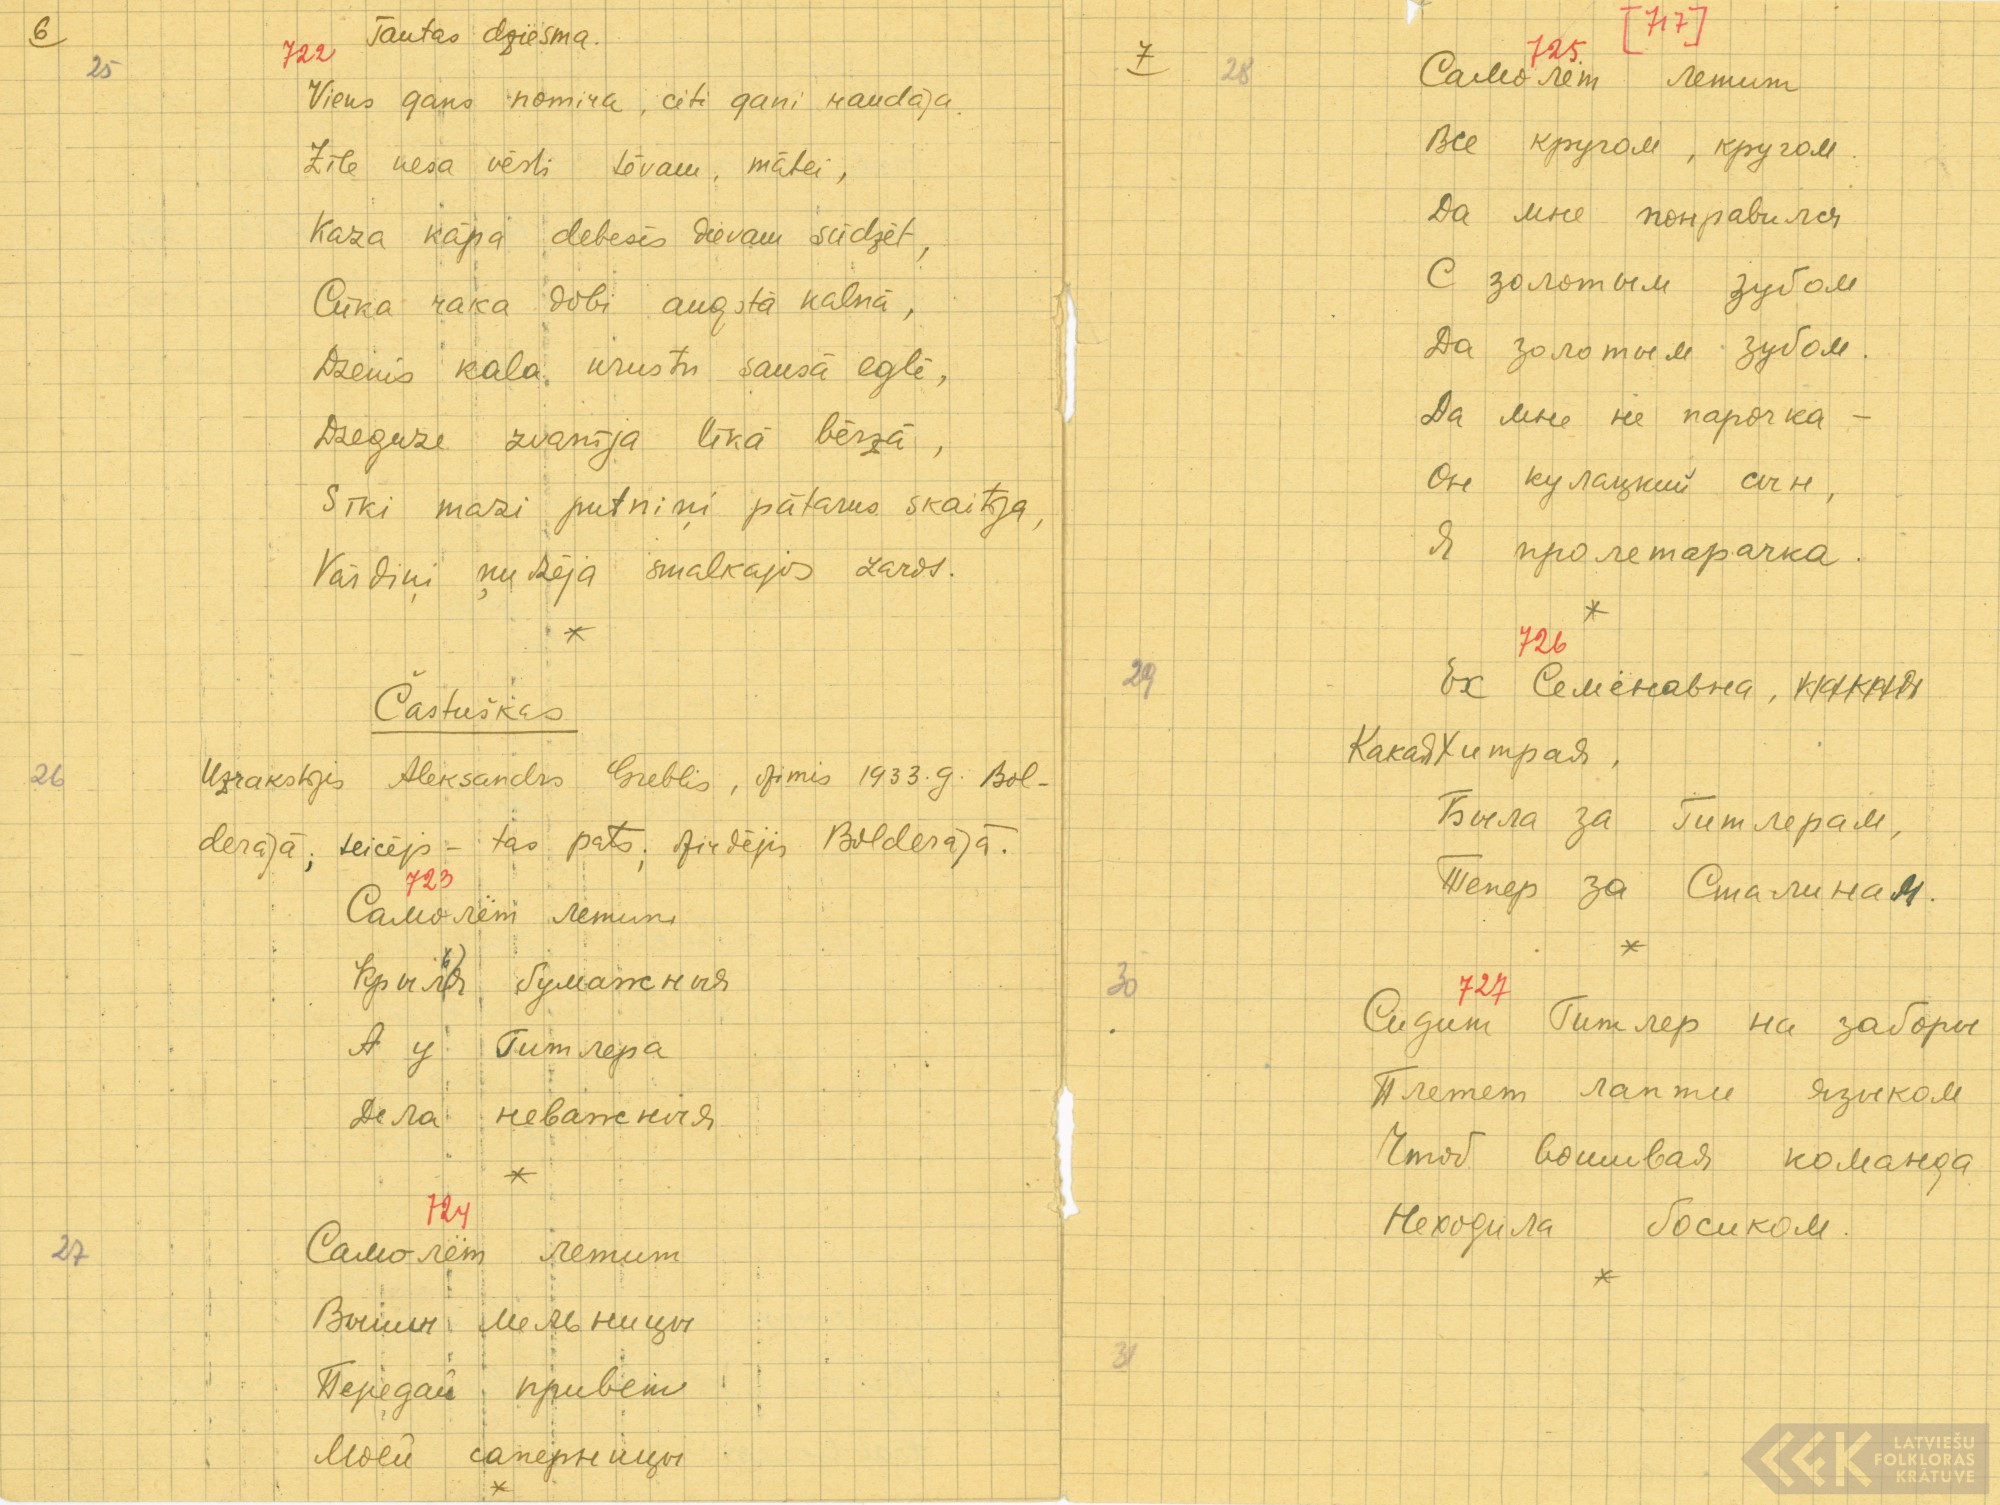 6
Tautas dziesma.
25
722
Viens gans nomira, citi gani raudāja.
Zīle nesa vēsti tēvam, mātei,
Kaza kāpa debesīs dievam sūdzēt,
Cūka raka dobi augstā kalnā,
Dzenis kala krustu sausā eglē,
Dzeguze zvanīja līkā bērzā,
Sīki mazi putniņi pātarus skaitīja,
Vārdiņi ņudzēja smalkajos zaros.
*
Častuškas
26
Uzrakstījis Aleksandrs Greblis, dzimis 1933. g. Bol-
derājā; teicējs – tas pats; dzirdējis Bolderājā.
723
Самолёт летит
Крылья бумажныя
А у Гитлера
Дела неважныя
*
724
27
Самолёт летит
Выши мельницы
Передай привет
Моей саперницы
*
7
[717]
28
725
Самолёт летит
Все кругом, кругом.
Да мне понравился
С золотым зубом
Да золотым зубом.
Да мне не парочка –
Он кулацкий сын,
Я пролетарачка.
*
726
29
Ех Семёнавна,
Какая Хитрая,
Была за Гитлерам,
Тепер за Сталинам.
*
30
727
Сидит Гитлер на заборы
Плетет лапти языком
Чтоб вошивая команда
Неходила босиком.
*
31
LATVIEŠU
FOLKLORAS
KRĀTUVE